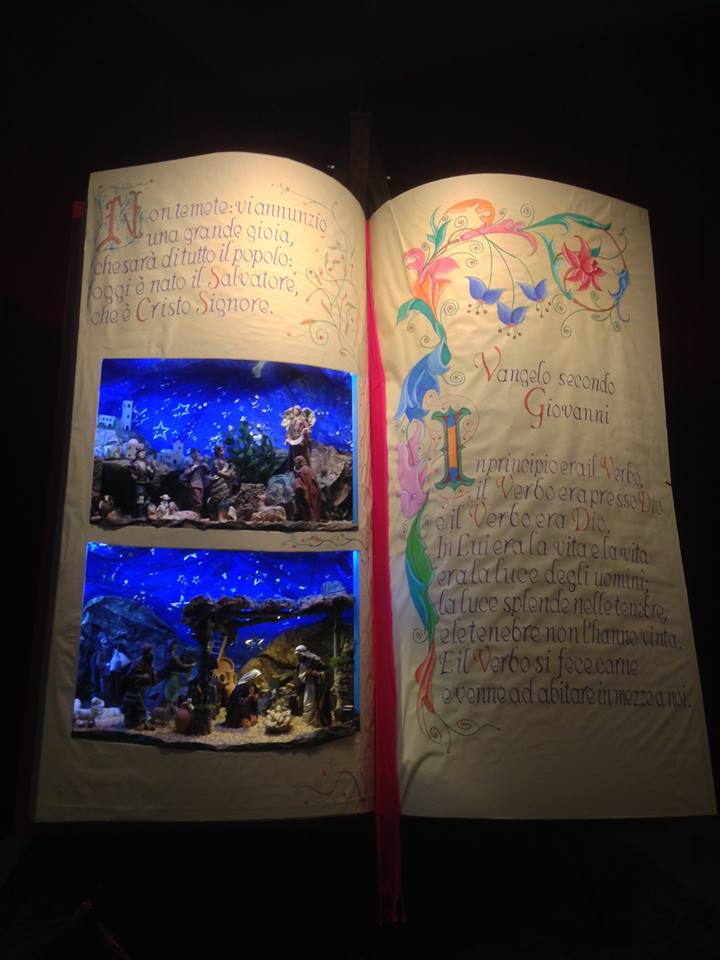 Non temete: vi annunzio
una grande gioia,
che sarà di tutto il popolo:
oggi è nato il Salvatore,
che è Cristo Signore.
Vangelo secondo
Giovanni
In principio era il Verbo,
il Verbo era presso Dio
e il Verbo era Dio.
In Lui era la vita e la vita
era la luce degli uomini;
la luce splende nelle tenebre,
e le tenebre non l'hanno vinta.
E il Verbo si fece carne
e venne ad abitare in mezzo a noi.